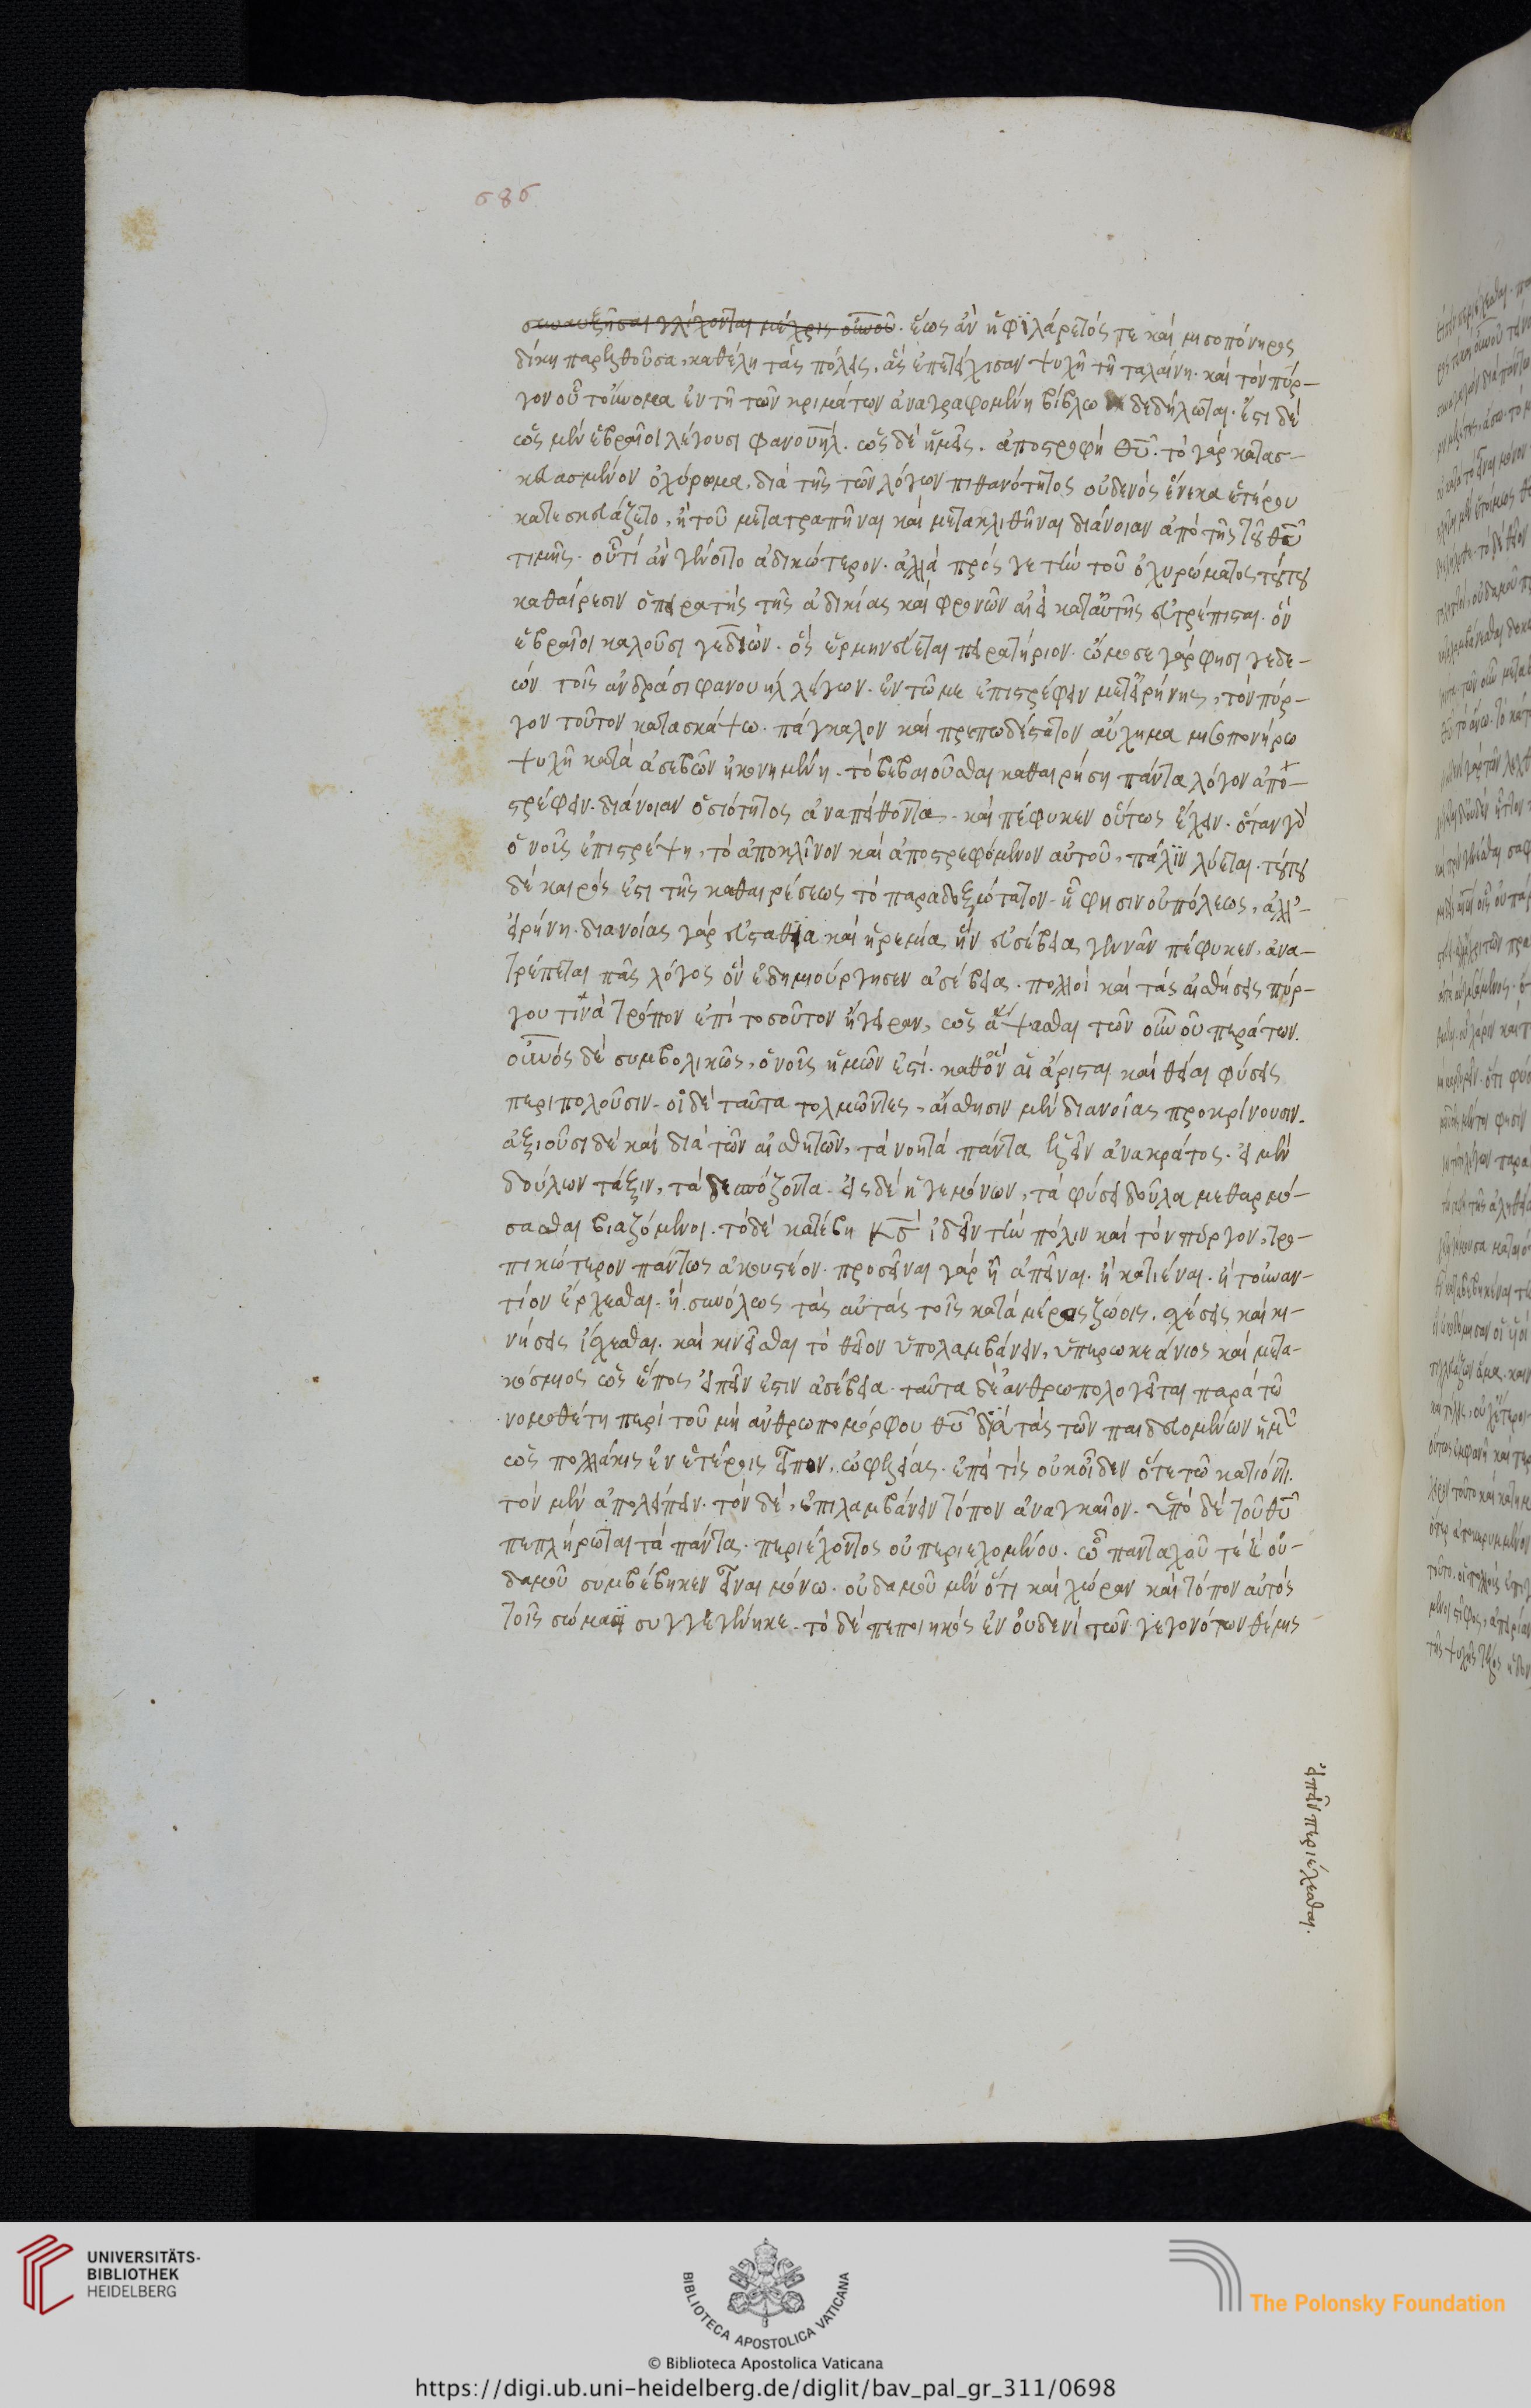 686
συναυξῆσαι γλίχονται μέχρις οὐνοῦ. ἕως ἂν ἡ φιλάρετός τε καὶ μισοπόνηρος
δίκη παρελθοῦσα, καθέλη τὰς πόλεις, ἃς ἐπετείχισαν ψυχῆ τῆ ταλαίνη. καὶ τὸν πύρ-
γον οὗ τοὔνομα ἐν τῆ τῶν κριμάτων ἀναγραφομένη βίβλω δεδήλωται. ἔστι δὲ
ὡς μὲν ἑβραῖοι λέγουσι φανουήλ. ὡς δὲ ἡμεῖς. ἀποστροφὴ θῦ. τὸ γὰρ κατασ-
κευασμένον ὀχύρωμα, διὰ τῆς τῶν λόγων πιθανότητος οὐδενὸς ἕνεκα ἑτέρου
κατεσκευάζετο, ἢ τοῦ μετατραπῆναι καὶ μετακλιθῆναι διάνοιαν ἀπὸ τῆς τοῦ θῦ
τιμῆς. οὗ τί ἂν γένοιτο ἀδικώτερον. ἀλλὰ πρός γε τὴν τοῦ ὀχυρώματος τούτου
καθαίρεσιν ὁ πειρατὴς τῆς ἀδικίας καὶ φρονῶν αἰεὶ κατ' αὐτῆς εὐτρέπισται. ὃν
ἑβραῖοι καλοῦσι γεδεών. ὃς ἑρμηνεύεται πειρατήριον. ὤμοσε γάρ φησι γεδε-
ὼν τοῖς ἀνδράσι φανουὴλ λέγων. ἐν τῶ με ἐπιστρέφειν μετ' εἰρήνης, τὸν πύρ-
γον τοῦτον κατασκάψω. πάγκαλον καὶ πρεπωδέστατον αὔχημα μισοπονήρω
ψυχῆ κατὰ ἀσεβῶν ἠκονημένη. τὸ βεβαιοῦσθαι καθαιρήσειν πάντα λόγον ἀπο-
στρέφειν. διάνοιαν ὁσιότητος ἀναπείθοντα. καὶ πέφυκεν οὕτως ἔχειν. ὅταν γὰρ
ὁ νοῦς ἐπιστρέψη, τὸ ἀποκλῖνον καὶ ἀποστρεφόμενον αὐτοῦ, πάλιν λύεται. τούτου
δὲ καιρός ἐστι τῆς καθαιρέσεως τὸ παραδοξότατον. ἧ φησιν οὐ πόλεμος, ἀλλ'-
εἰρήνη. διανοίας γὰρ εὐσταθεία καὶ ἠρεμία, ἣν εὐσέβεια γεννᾶν πέφυκεν, ἀνα-
τρέπεται πᾶς λόγος ὃν ἐδημιούργησεν ἀσέβεια. πολλοὶ καὶ τὰς αἰσθήσεις πύρ-
γου τινὰ τρόπον ἐπὶ τοσοῦτον ἤγειραν, ὡς ἅψασθαι τῶν οὐνοῦ περάτων.
οὐνὸς δὲ συμβολικῶς, ὁ νοῦς ἡμῶν ἐστί. καθ' ὃν αἱ ἄρισται καὶ θεῖαι φύσεις
περιπολοῦσιν. οἱ δὲ ταῦτα τολμῶντες, αἴσθησιν μὲν διανοίας προκρίνουσιν.
ἀξιοῦσι δὲ καὶ διὰ τῶν αἰσθητῶν, τὰ νοητὰ πάντα ἑλεῖν ἀνακράτος. εἰ μὲν
δούλων τάξιν, τὰ δεσπόζοντα. εἰς δὲ ἡγεμόνων, τὰ φύσει δοῦλα μεθαρμό-
σασθαι βιαζόμενοι. τὸ δὲ κατέβη κς ἰδεῖν τὴν πόλιν καὶ τὸν πύργον, τρο-
πικώτερον πάντως ἀκουστέον. προσεῖναι γὰρ ἢ ἀπεῖναι. ἢ κατιέναι. ἢ τοὐναν-
τίον ἔρχεσθαι. ἢ συνόλως τὰς αὐτὰς τοῖς κατὰ μέρος ζώοις, σχέσεις καὶ κι-
νήσεις ἴσχεσθαι. καὶ κινεῖσθαι τὸ θεῖον ὑπολαμβάνειν, ὑπερωκεάνιος καὶ μετα-
κόσμιος ὡς ἔπος εἰπεῖν ἐστιν ἀσέβεια. ταῦτα δὲ ἀνθρωπολογεῖται παρὰ τῶ
νομοθέτη περὶ τοῦ μὴ ἀνθρωπομόρφου θῦ διὰ τὰς τῶν παιδευομένων ἡμῶν
ὡς πολλάκις ἐν ἑτέροις εἶπον, ὠφελείας. ἐπεὶ τίς οὐκ οἶδεν ὅτι τῶ κατιόντι.
τὸν μὲν ἀπολείπειν. τὸν δὲ, ἐπιλαμβάνειν τόπον ἀναγκαῖον. ὑπὸ δὲ τοῦ θῦ
πεπλήρωται τὰ πάντα. περιέχοντος οὐ περιεχομένου. ὧ πανταχοῦ τὲ καὶ οὐ-
δαμοῦ συμβέβηκεν εἶναι μόνω. οὐδαμοῦ μὲν ὅτι καὶ χώραν καὶ τόπον αὐτὸς
τοῖς σώμασι συγγεγέννηκε. τὸ δὲ πεποιηκὸς ἐν οὐδενὶ τῶν γεγονότων θέμις
εἰπεῖν περιέχεσθαι.
UNIVERSITÄTS-
BIBLIOTHEK
HEIDELBERG
BIBLIOTECA APOSTOLICA VATICANA
© Biblioteca Apostolica Vaticana
The Polonsky Foundation
https://digi.ub.uni-heidelberg.de/diglit/bav_pal_gr_311/0698